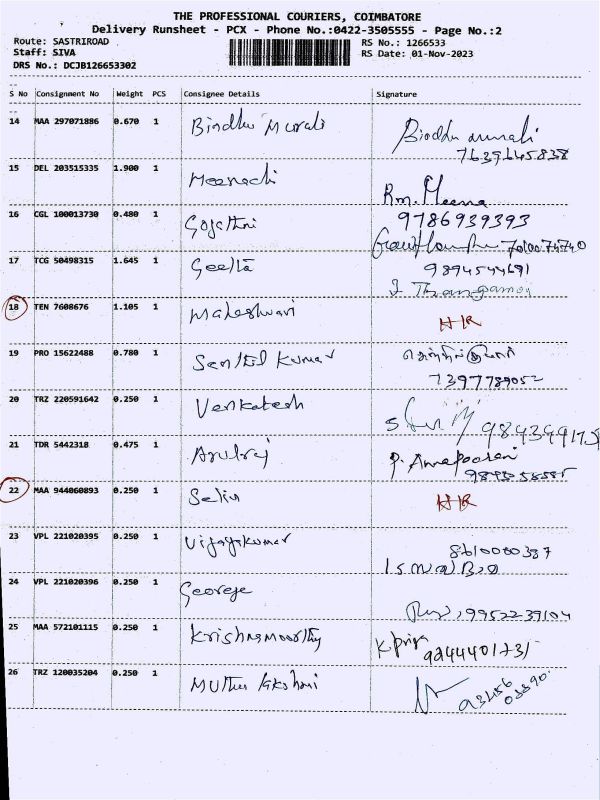 THE PROFESSIONAL COURIERS, COIMBATORE
Delivery Runsheet - PCX - Phone No.:0422-3505555 - Page No.:2
Route: SASTRIROAD
RS No.: 1266533
Staff: SIVA
RS Date: 01-Nov-2023
DRS No.: DCJB126653302
S No Consignment No Weight PCS Consignee Details Signature
14 MAA 297071886 0.670 1 Bindhu Murali Bindhu murali
7639645838
15 DEL 203515335 1.900 1 Meenachi Rm. Meena
9786939393
16 CGL 100013730 0.480 1 Gojathri
17 TCG 50498315 1.645 1 Geetha 9894544691
18 TEN 7608676 1.105 1 Maheshwari HR
19 PRO 15622488 0.780 1 Senthil Kumar செந்தில்குமார்
7397789052
20 TRZ 220591642 0.250 1 Venkatesh
21 TDR 5442318 0.475 1 Arulraj P. Annapoorani
22 MAA 944060893 0.250 1 Selin HR
23 VPL 221020395 0.250 1 Vijayakumar
24 VPL 221020396 0.250 1 George 9952239104
25 MAA 572101115 0.250 1 Krishnamoorthy K Priya
26 TRZ 120035204 0.250 1 Muthu lakshmi